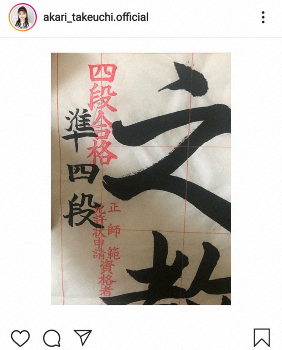 akari_takeuchi.official
之教
四段合格
準四段
正師範資格者
免許状申請